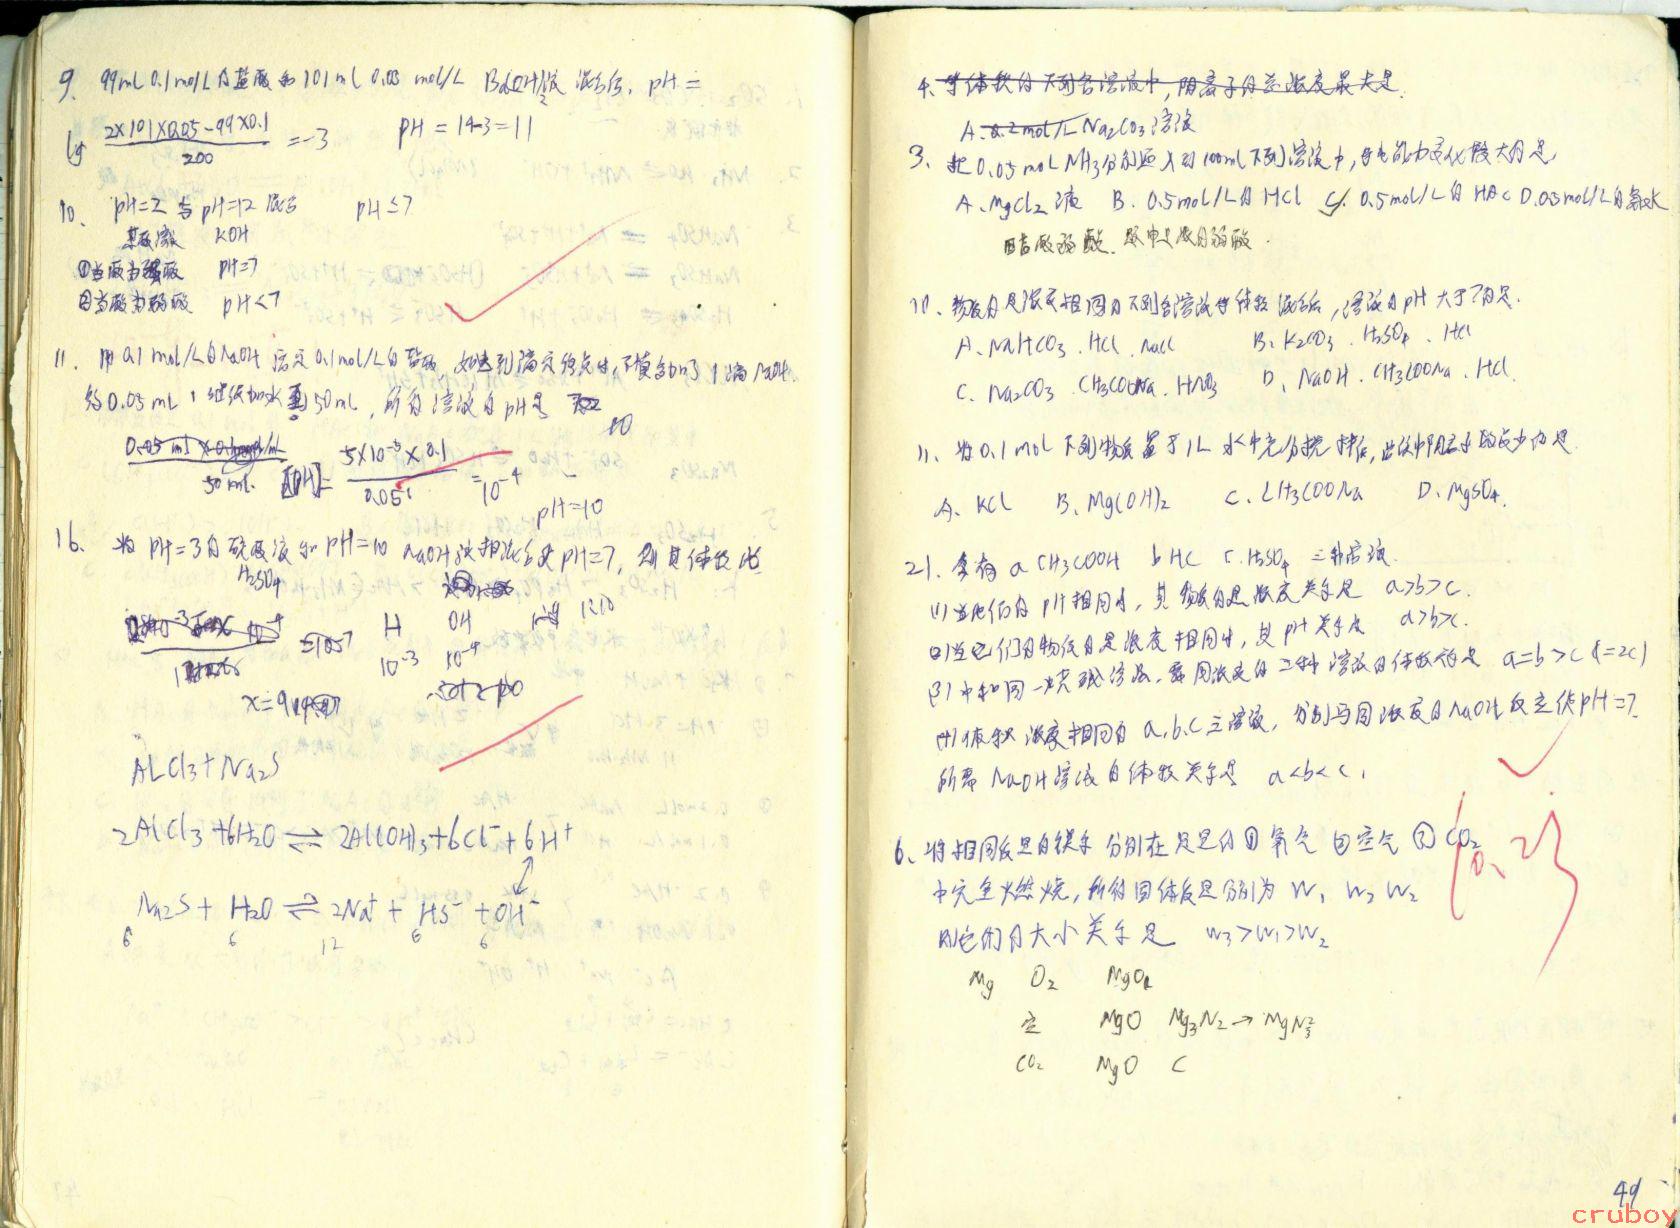 9. 99ml 0.1mol/L的盐酸和101ml 0.05 mol/L Ba(OH)2液混合后, pH=
lg (2×101×0.05-99×0.1)/200 = -3  pH=14-3=11
10. pH=2 与 pH=12 混合 pH≤7
某酸溶液 KOH
①当酸为强酸 pH=7
②当酸为弱酸 pH<7
11. 用0.1 mol/L的NaOH 滴定0.1mol/L的盐酸, 如达到滴定终点时,不慎多加了1滴NaOH.
约0.05 mL, 继续加水至50mL, 所得溶液的pH是 10
50ml. [OH]= 5×10⁻⁵×0.1 / 0.05 = 10⁻⁴
pH=10
16. 将 pH=3的硫酸液和pH=10 NaOH液相混合使pH=7, 则其体积比
H2SO4
H OH 1:10
10⁻³ 10⁻⁴
AlCl3+Na2S
2AlCl3+6H2O ⇌ 2Al(OH)3+6Cl⁻+6H⁺
Na2S + H2O ⇌ 2Na⁺ + HS⁻ + OH⁻
6 6 12 6 6
4. 等体积的下列各溶液中, 阴离子的总浓度最大是.
A. 0.2mol/L Na2CO3溶液
3. 把0.05mol NH3分别通入到100ml下列溶液中, 导电能力变化最大的是
A. MgCl2液 B. 0.5mol/L的HCl C. 0.5mol/L的HAc D. 0.05mol/L的氨水
10. 物质的量浓度相同的下列各溶液等体积混合后, 溶液的pH大于7的是.
A. NaHCO3. HCl. NaCl B. K2CO3. H2SO4. HCl
C. Na2CO3. CH3COONa. HNO3 D. NaOH. CH3COONa. HCl.
11. 将0.1mol下列物质置于1L水中充分搅拌后, 此液中阴离子的最少的是.
A. KCl B. Mg(OH)2 C. CH3COONa D. MgSO4.
21. 今有 a CH3COOH b HCl c. H2SO4 三种溶液.
(1)当他们的pH相同时, 其物质的量浓度关系是 a>b>c.
(2)当它们的物质的量浓度相同时, 其pH关系是 a>b>c.
(3)中和同一烧碱溶液, 需同浓度的三种溶液的体积的是 a=b>c (=2c)
(4)体积浓度相同的a.b.c三溶液, 分别与同浓度的NaOH反应使pH=7.
所需NaOH溶液的体积关系是 a<b<c.
6. 将相同质量的镁条分别在足量的①氧气 ②空气 ③CO2
中完全燃烧, 所得固体质量分别为 W1 W2 W3
则它们的大小关系是 W3>W1>W2
Mg O2 MgO
空 MgO Mg3N2→
CO2 MgO C
49
cruboy